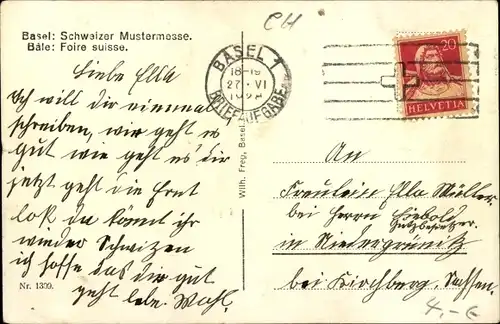 CH
Basel: Schweizer Mustermesse.
Bâle: Foire suisse.
BASEL 1
18-19
27. VI
BRIEFAUFGABE
20
HELVETIA
Liebe Ella
Ich will dir einmal
schreiben, wir geht es
gut wie geht es dir
jetzt geht die Ernt
lok du könnt ihr
wieder Schwizen
ich hoffe das dir gut
geht lebe. Wohl.
Nr. 1399.
Wilh. Frey, Basel
An
Fräulein Ella Müller
bei Herrn
Gutzbesitzer.
in Niedergrünitz
bei Kirchberg, Sachsen
4,-€